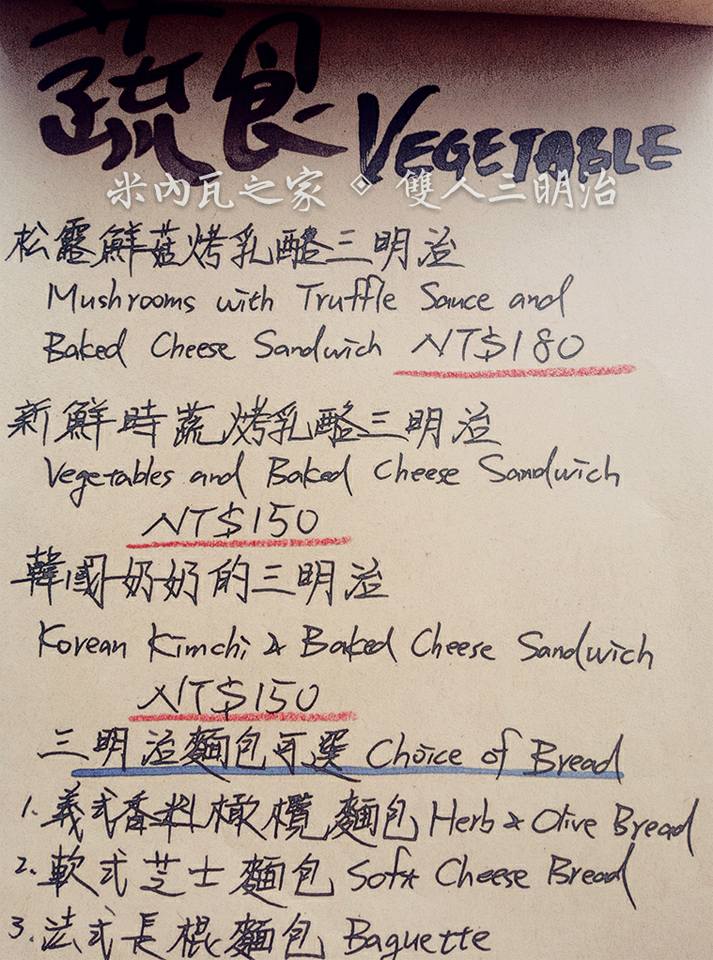 蔬食 VEGETABLE
米內瓦之家 ◇ 雙人三明治
松露鮮菇烤乳酪三明治
Mushrooms with Truffle Sauce and
Baked Cheese Sandwich NT$180
新鮮時蔬烤乳酪三明治
Vegetables and Baked Cheese Sandwich
NT$150
韓國奶奶的三明治
Korean Kimchi & Baked Cheese Sandwich
NT$150
三明治麵包可選 Choice of Bread
1. 義式香料橄欖麵包 Herb & Olive Bread
2. 軟式芝士麵包 Soft Cheese Bread
3. 法式長棍麵包 Baguette